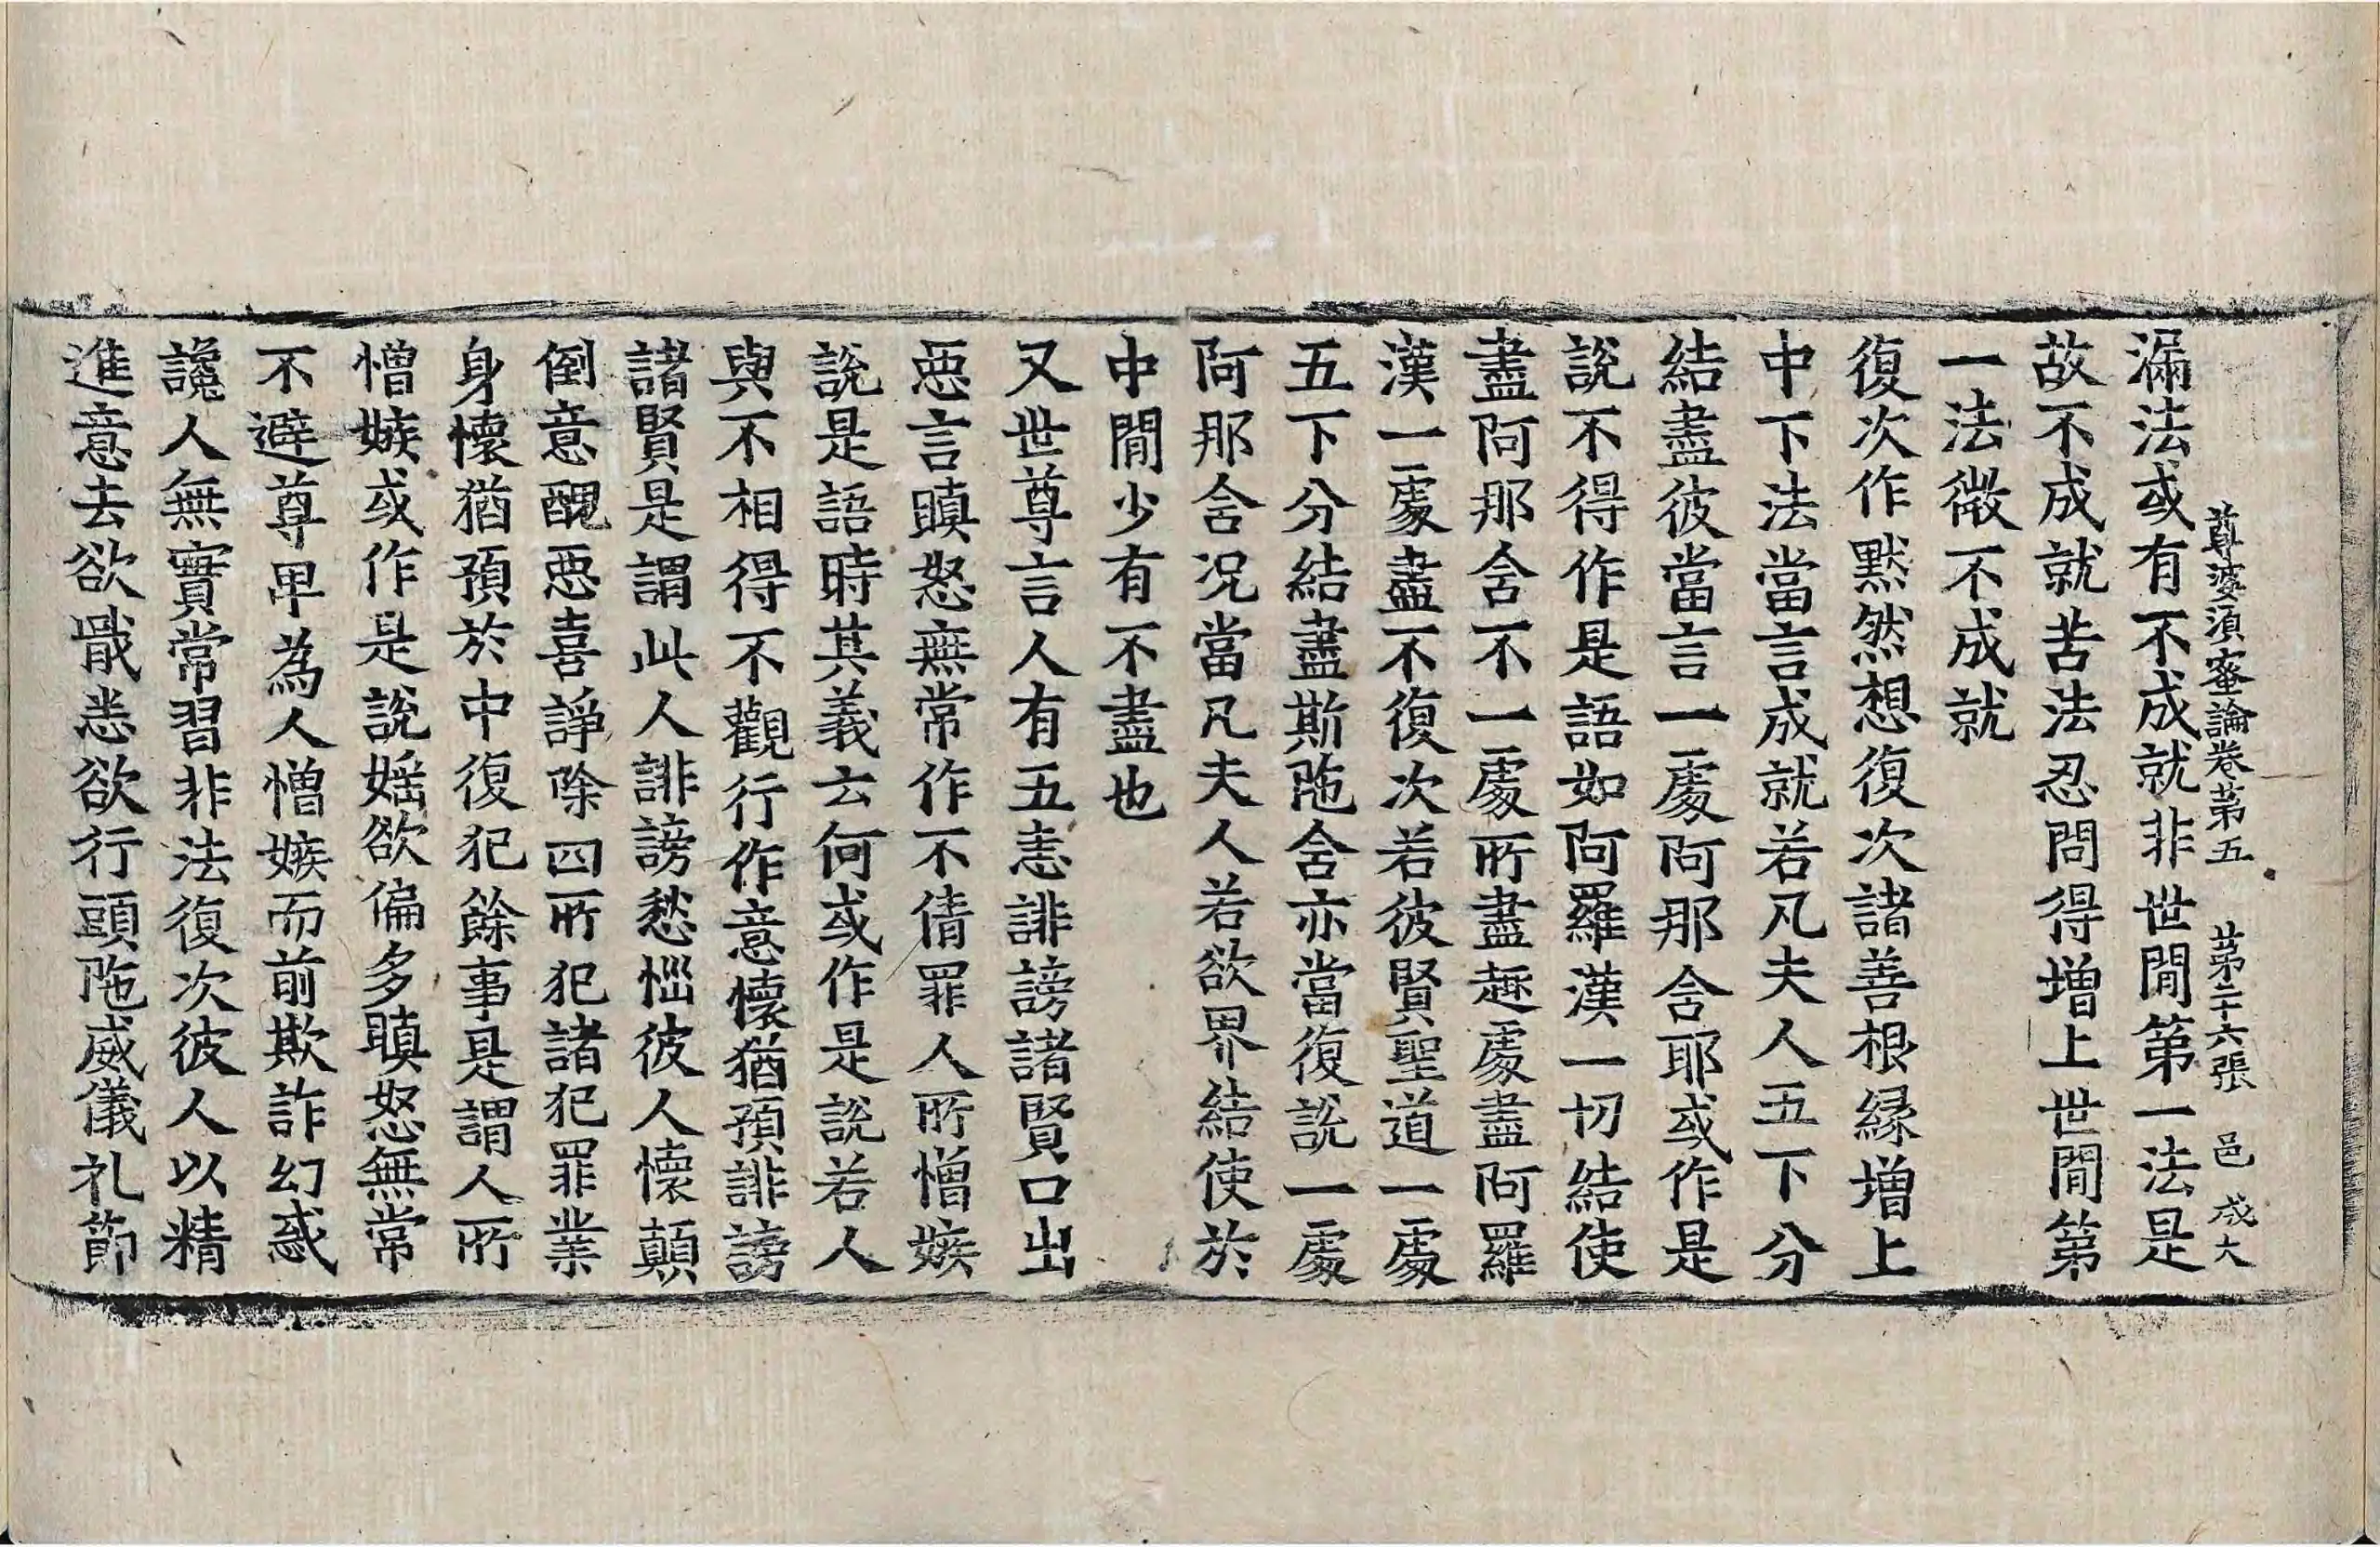 尊婆須蜜論卷第五　第二十六張　邑　成大
漏法或有不成就非世間第一法是
故不成就苦法忍問得增上世間第
一法微不成就
復次作黙然想復次諸善根緣增上
中下法當言成就若凡夫人五下分
結盡彼當言一處阿那含耶或作是
說不得作是語如阿羅漢一切結使
盡阿那含不一處所盡趣處盡阿羅
漢一處盡不復次若彼賢聖道一處
五下分結盡斯陁含亦當復說一處
阿那含况當凡夫人若欲界結使於
中間少有不盡也
又世尊言人有五恚誹謗諸賢口出
惡言瞋怒無常作不倩罪人所憎嫉
說是語時其義云何或作是說若人
與不相得不觀行作意懷猶預誹謗
諸賢是謂此人誹謗愁惱彼人懷顛
倒意醜惡喜諍除四所犯諸犯罪業
身懷猶預於中復犯餘事是謂人所
憎嫉或作是說婬欲偏多瞋怒無常
不避尊卑為人憎嫉而前欺詐幻惑
讒人無實常習非法復次彼人以精
進意去欲戢恚欲行頭陁威儀礼節